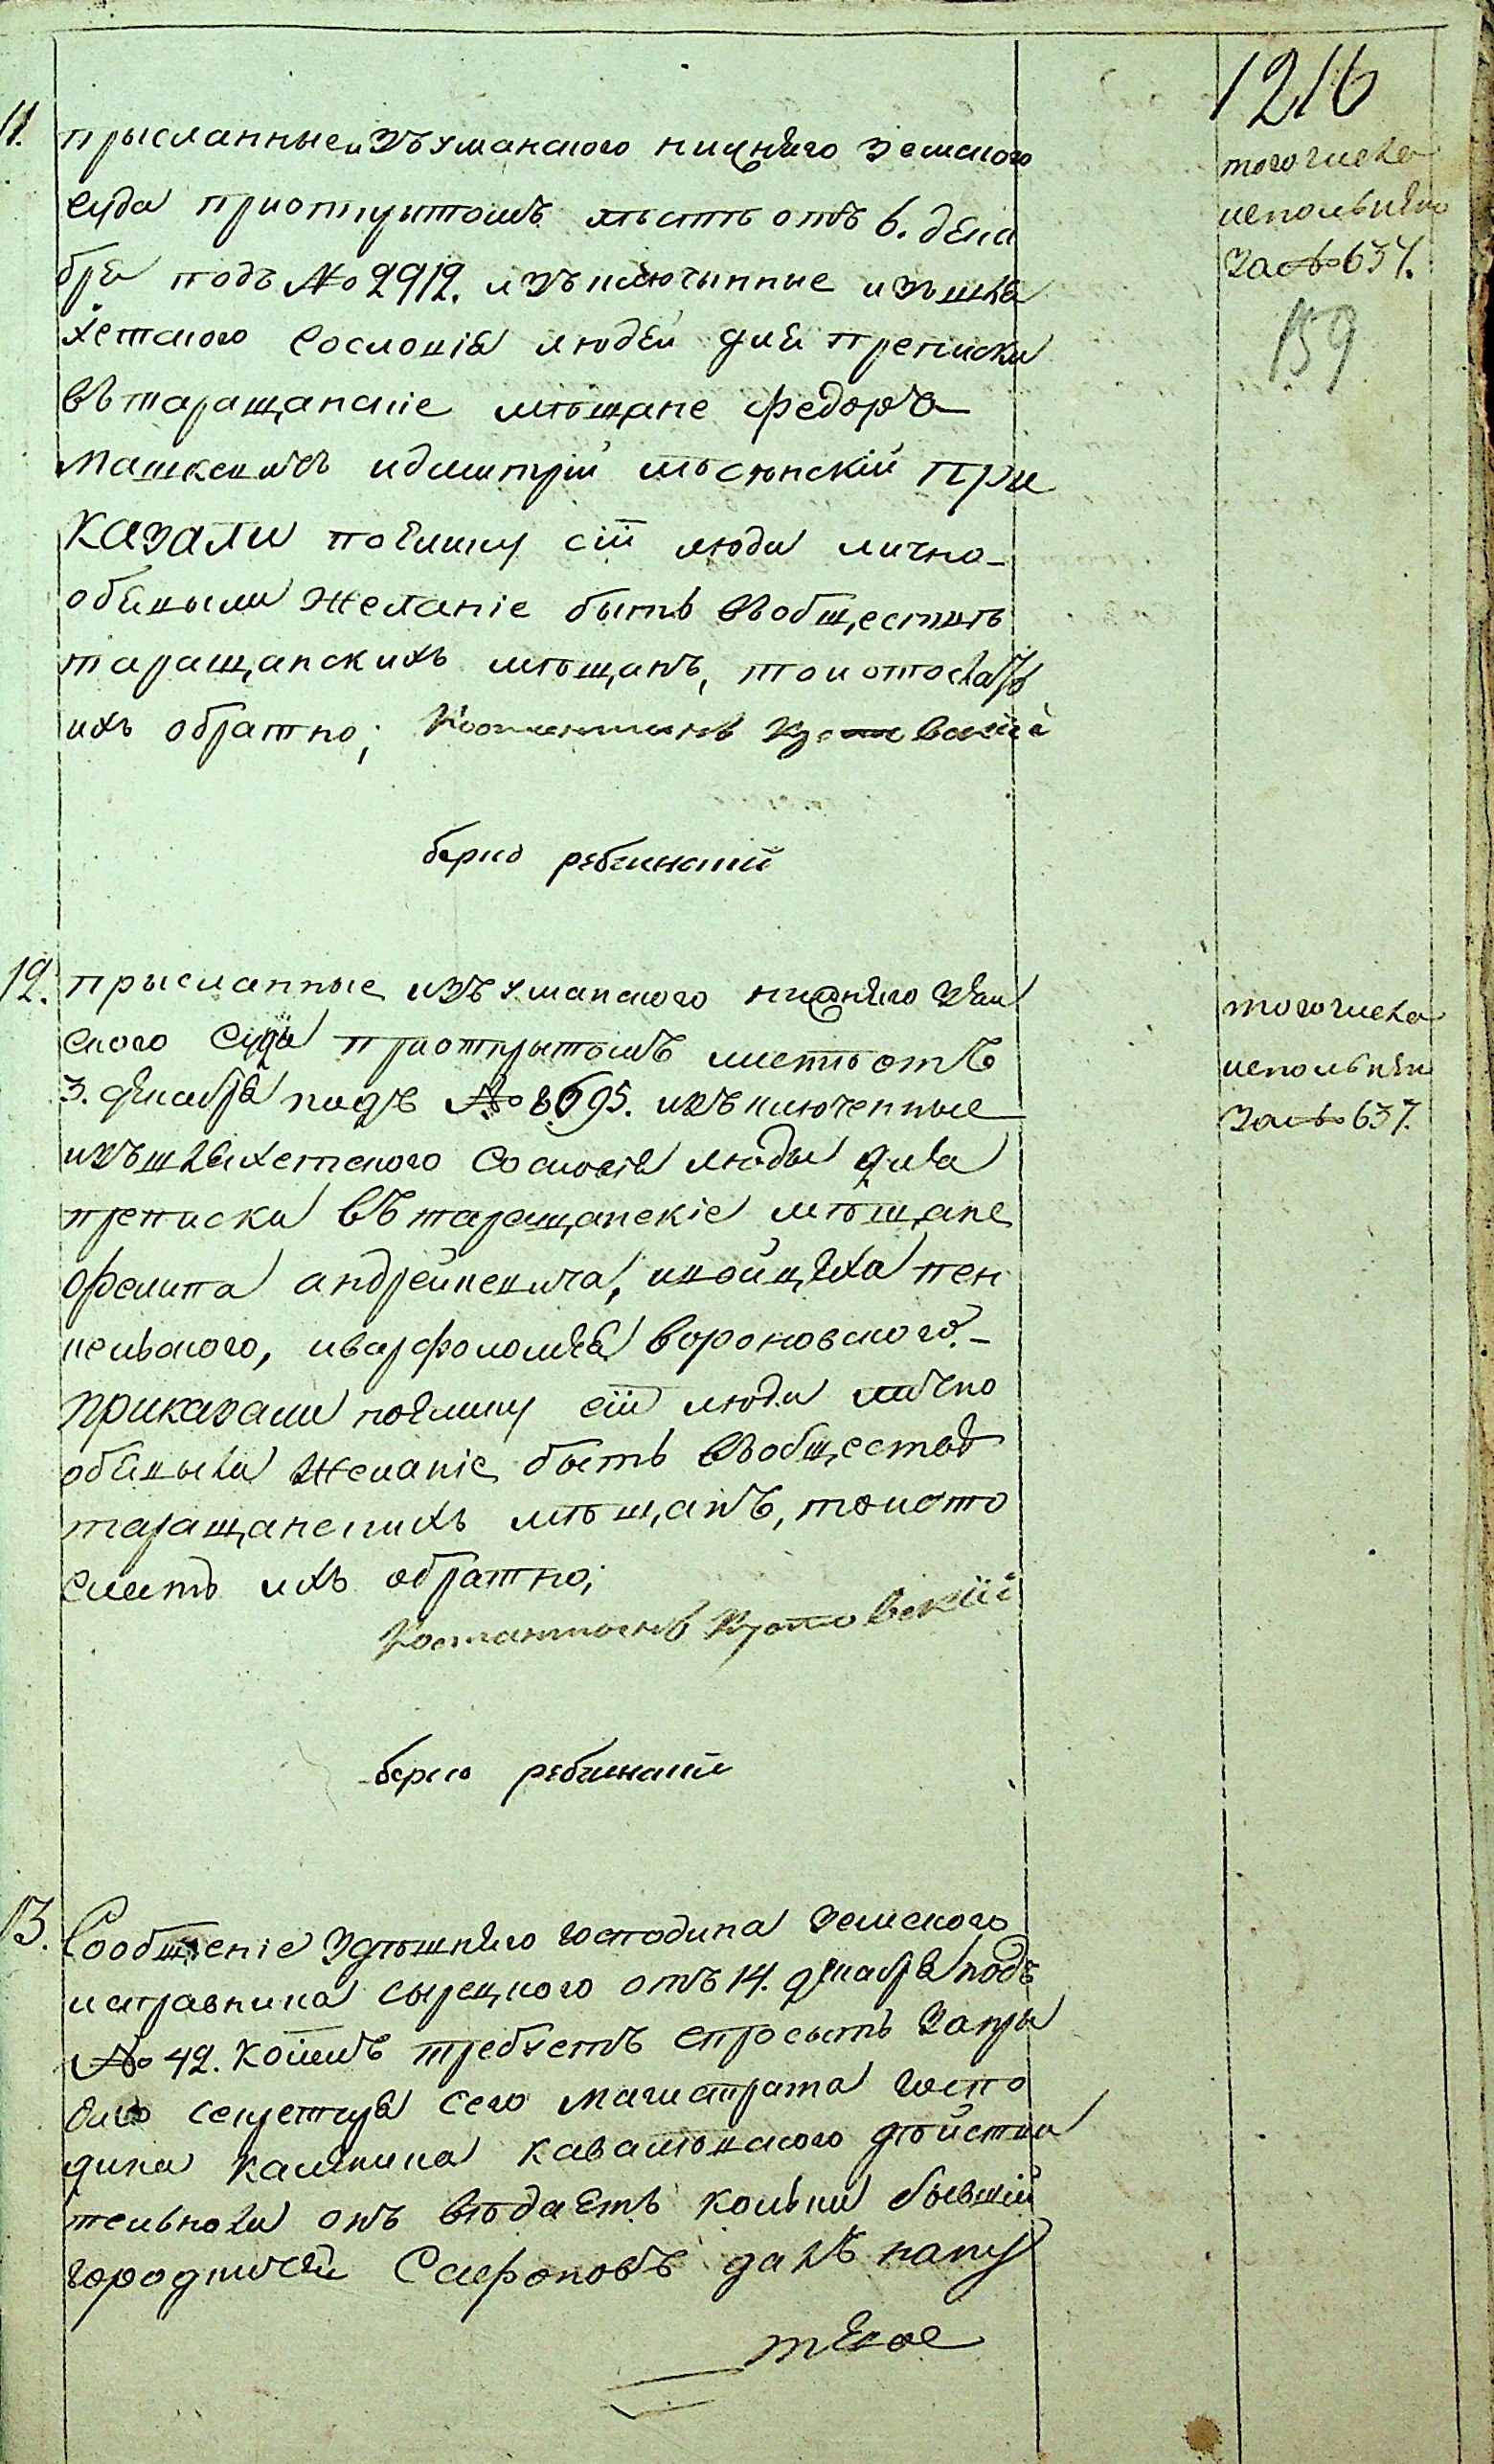 1216
11. присланные изъ уманского нижнего земского
суда приоткрытомъ листе отъ 6. дека
бря подъ № 2912. изъключынные изъшля
хетского Сословія людей для преписки
въ таращанские мѣщане Федоръ
Машкевичъ идмитрій
При
казали поелику сіи люди лично
объявыли желаніе быть въобществѣ
таращанскихъ мѣщанъ, то и отослать
ихъ обратно; Костантинъ
того числа
исполънено
за № 637.
159
12. присланные изъ уманского нижнего зем
ского суда приоткрытомъ листе отъ
3. декабря подъ № 8695. изъключенные
изъшляхетского Сословія люды для
преписки въ таращанскіе мѣщане
Филипа андрейкевича, ивойцеха пен
кельского, иварфоломея вороновского.
приказали поелику сіи люди лично
объявыли желаніе быть въобществе
таращанскихъ мѣщанъ, то и ото
слать ихъ обратно;
Костантинъ
того числа
исполънен
за № 637.
13. Сообщеніе здѣшнего господина земского
исправника сырецкого отъ 14. декабря подъ
№ 42. коимъ требуетъ спросыть
секретаря сего магистрата госпо
дина кавалѣвского дѣйстви
тельноли онъ вѣдаетъ колыки бывшій
городничій Сафоновъ далъ
такое